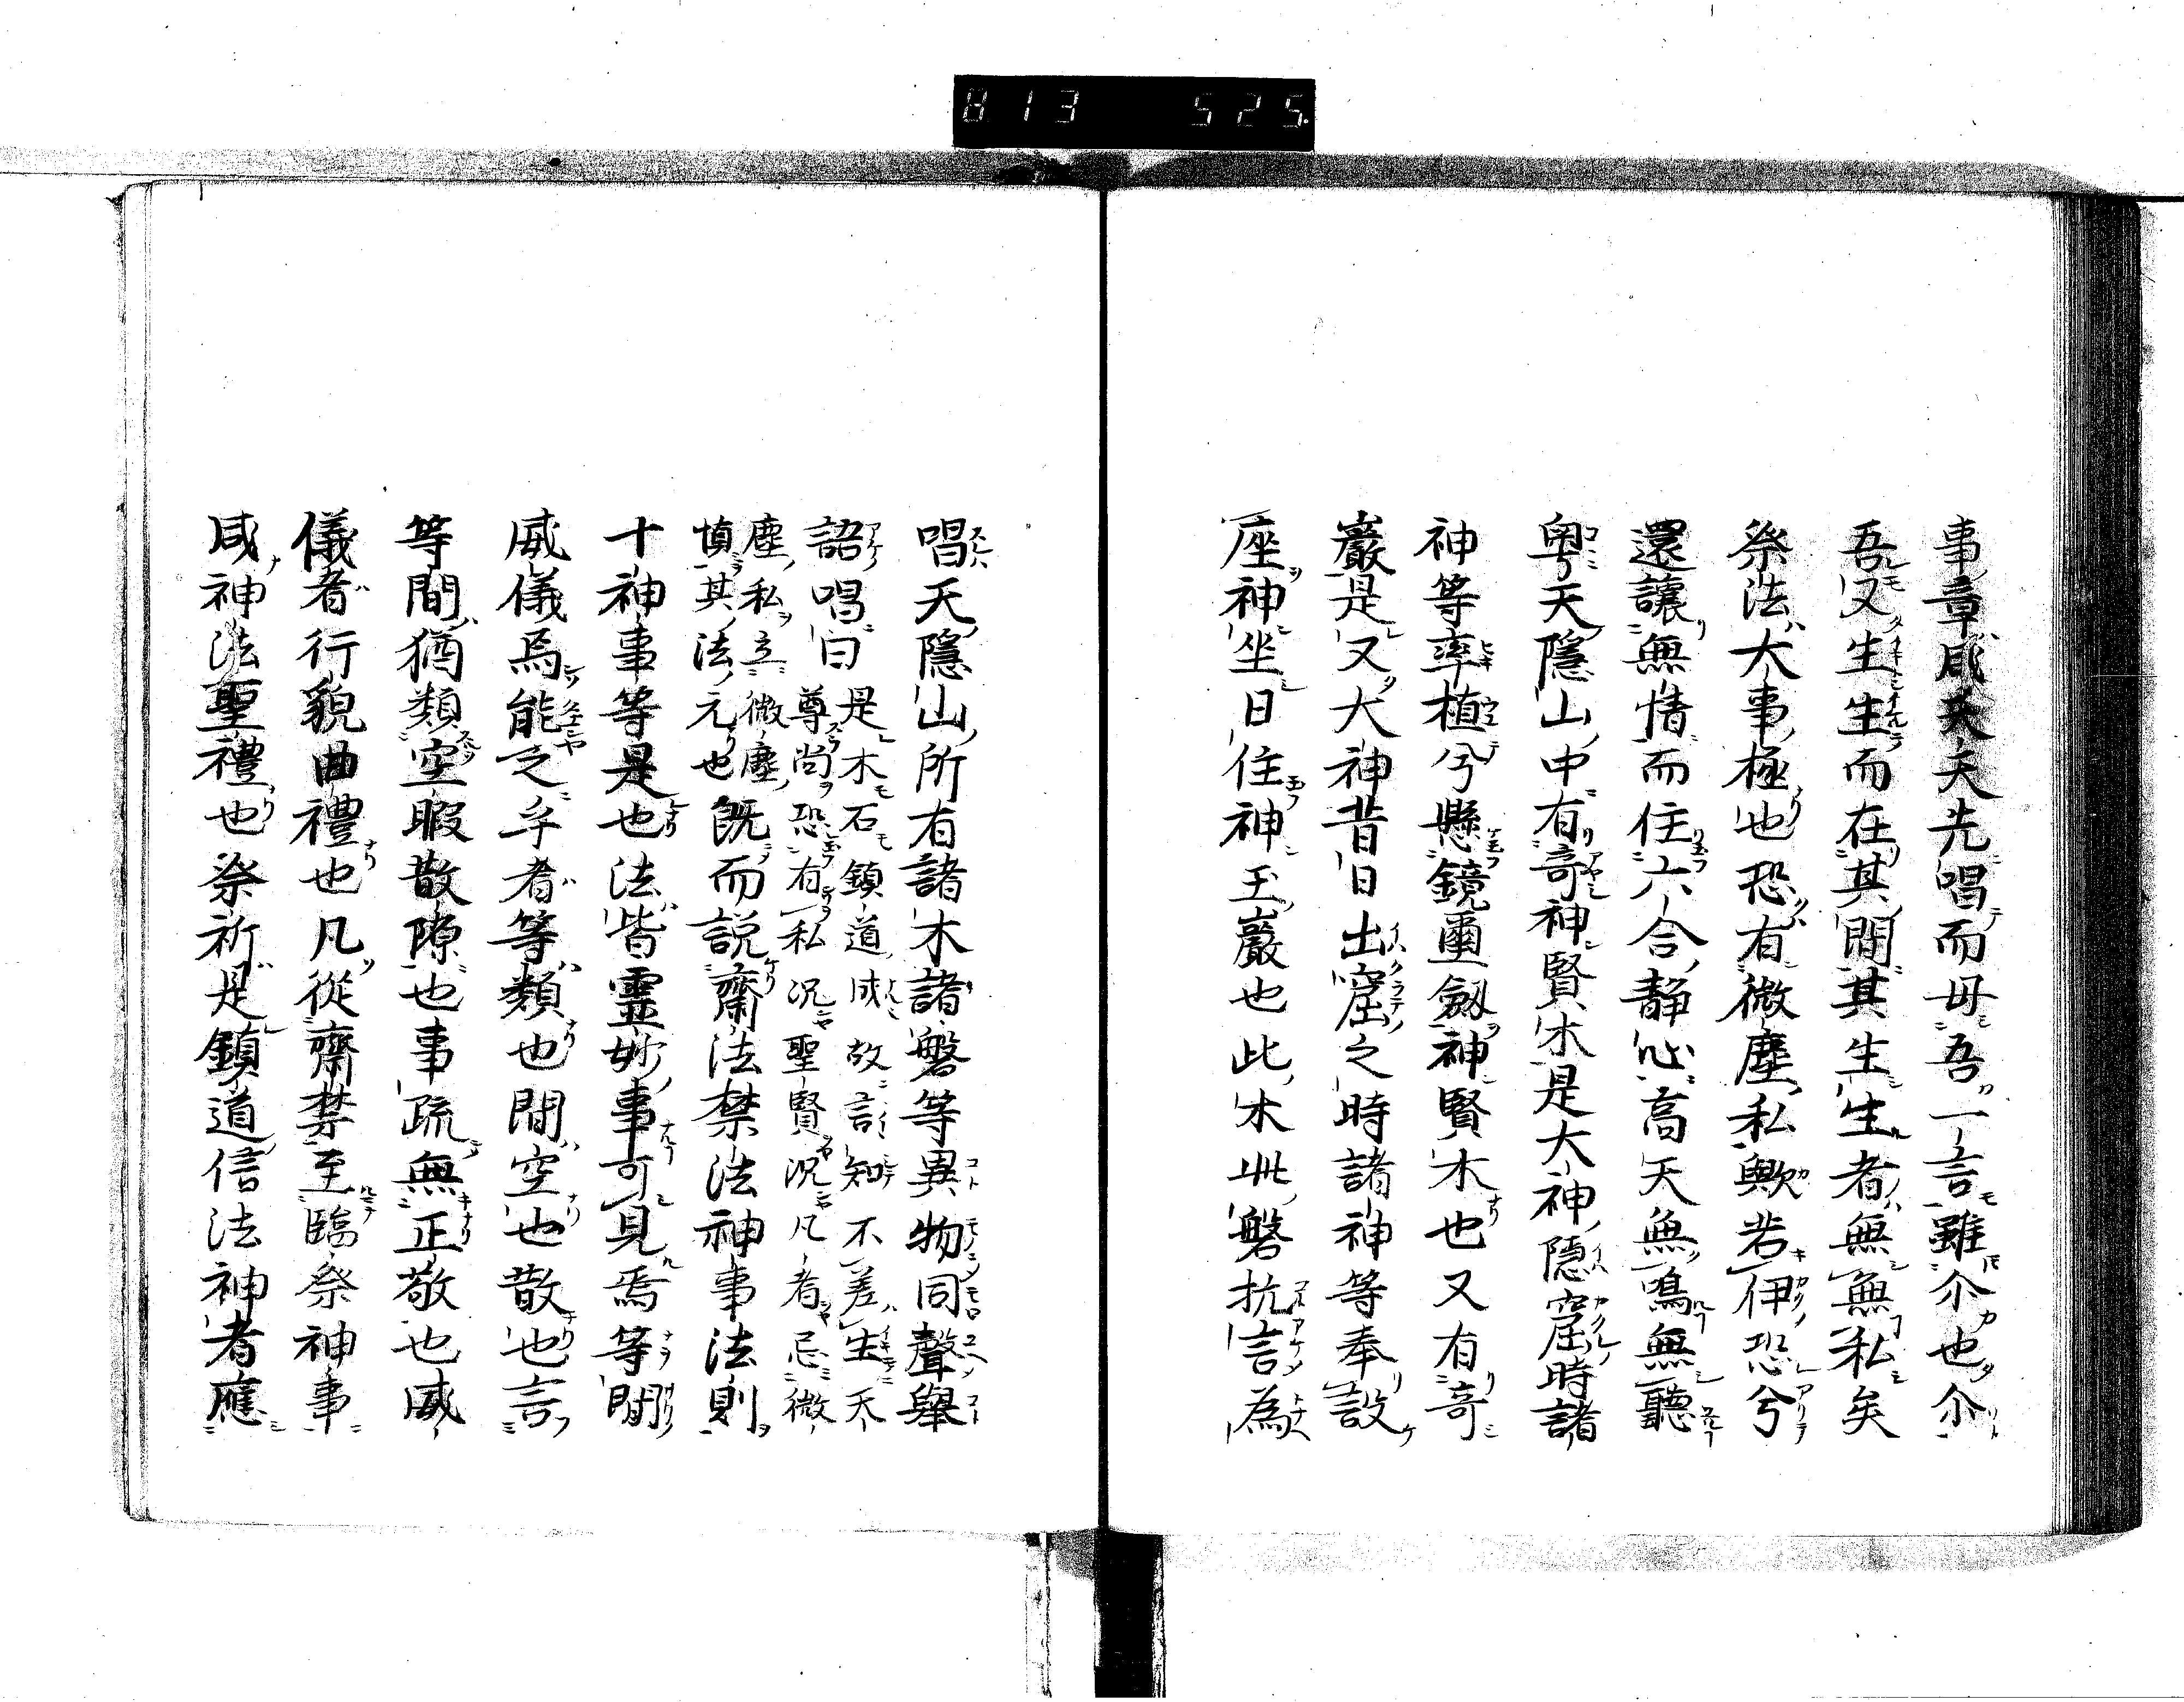 813 525.
事章成天夫先唱而毋吾一言雖尒也尒
吾又生生而在其間其生生者無無私矣
祭法大事極也恐有微塵私歟若伊恐兮
還讓無情而住六合靜心高天無鳴無聽
粤天隱山中有奇神賢木是大神隱窟時諸
神等率植兮懸鏡璽劔神賢木也又有奇
巖是又大神昔日出窟之時諸神等奉設
座神坐日住神玉巖也此木此磐抗言為
唱天隱山所有諸木諸磐等異物同聲舉
詔唱曰是木石鎮道成故言知不差生天
尊尚恐有私況聖賢況凡者忌微
塵私立微塵
慎其法元也既而説齋法禁法神事法則
十神事等是也法皆靈妙事可見焉等閒
威儀焉能之乎者等類也閒空也散也言
等間猶類空暇散隙也事疏無正敬也威
儀者行貌曲禮也凡從齋禁至臨祭神事
咸神法聖禮也祭祈是鎮道信法神者應